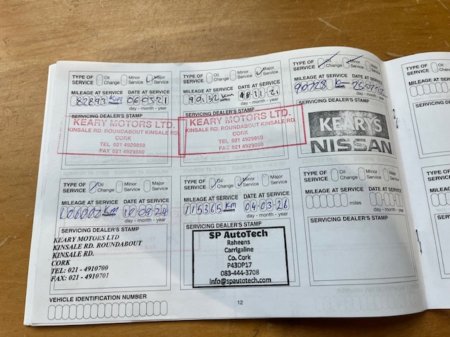 TYPE OF SERVICE Oil Change Minor Service Major Service
MILEAGE AT SERVICE DATE AT SERVICE
day - month - year
SERVICING DEALER'S STAMP
KEARY MOTORS LTD.
KINSALE RD. ROUNDABOUT KINSALE RD.
CORK
TYPE OF SERVICE Oil Change Minor Service Major Service
MILEAGE AT SERVICE DATE AT SERVICE
day - month - year
SERVICING DEALER'S STAMP
KEARY MOTORS LTD.
KINSALE RD. ROUNDABOUT KINSALE RD.
CORK
TYPE OF SERVICE Oil Change Minor Service Major Service
MILEAGE AT SERVICE DATE AT SERVICE
day - month - year
SERVICING DEALER'S STAMP
KEARYS
NISSAN
TYPE OF SERVICE Oil Change Minor Service Major Service
MILEAGE AT SERVICE DATE AT SERVICE
day - month - year
SERVICING DEALER'S STAMP
KEARY MOTORS LTD
KINSALE RD. ROUNDABOUT
KINSALE RD.
CORK
TEL: 021 - 4910700
FAX: 021 - 4910701
TYPE OF SERVICE Oil Change Minor Service Major Service
MILEAGE AT SERVICE DATE AT SERVICE
115365 km 04 03 26
day - month - year
SERVICING DEALER'S STAMP
SP AutoTech
Raheens
Carrigaline
Co. Cork
P43DP17
083-444-3708
info@spautotech.com
TYPE OF SERVICE Oil Change Minor Service
MILEAGE AT SERVICE DATE AT
miles day - month
SERVICING DEALER'S STAMP
VEHICLE IDENTIFICATION NUMBER
12